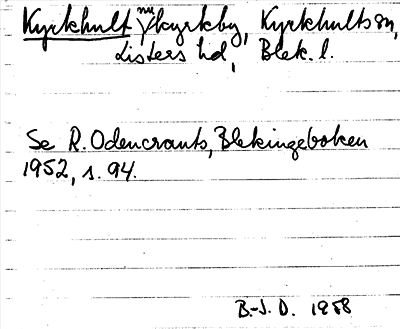 Kyrkhult nu kyrkby, Kyrkhults sn,
Listers hd, Blek. l.
Se R. Odencrants, Blekingeboken
1952, s. 94.
B-J. D. 1958